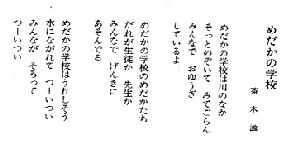 めだかの学校
茶木 滋
めだかの学校は川のなか
そっとのぞいて みてごらん
みんなで おゆうぎ
しているよ
めだかの学校のめだかたち
だれが生徒か 先生か
みんなで げんきに
あそんでる
めだかの学校はうれしそう
水にながれて つーいつい
みんなが そろって
つーいつい